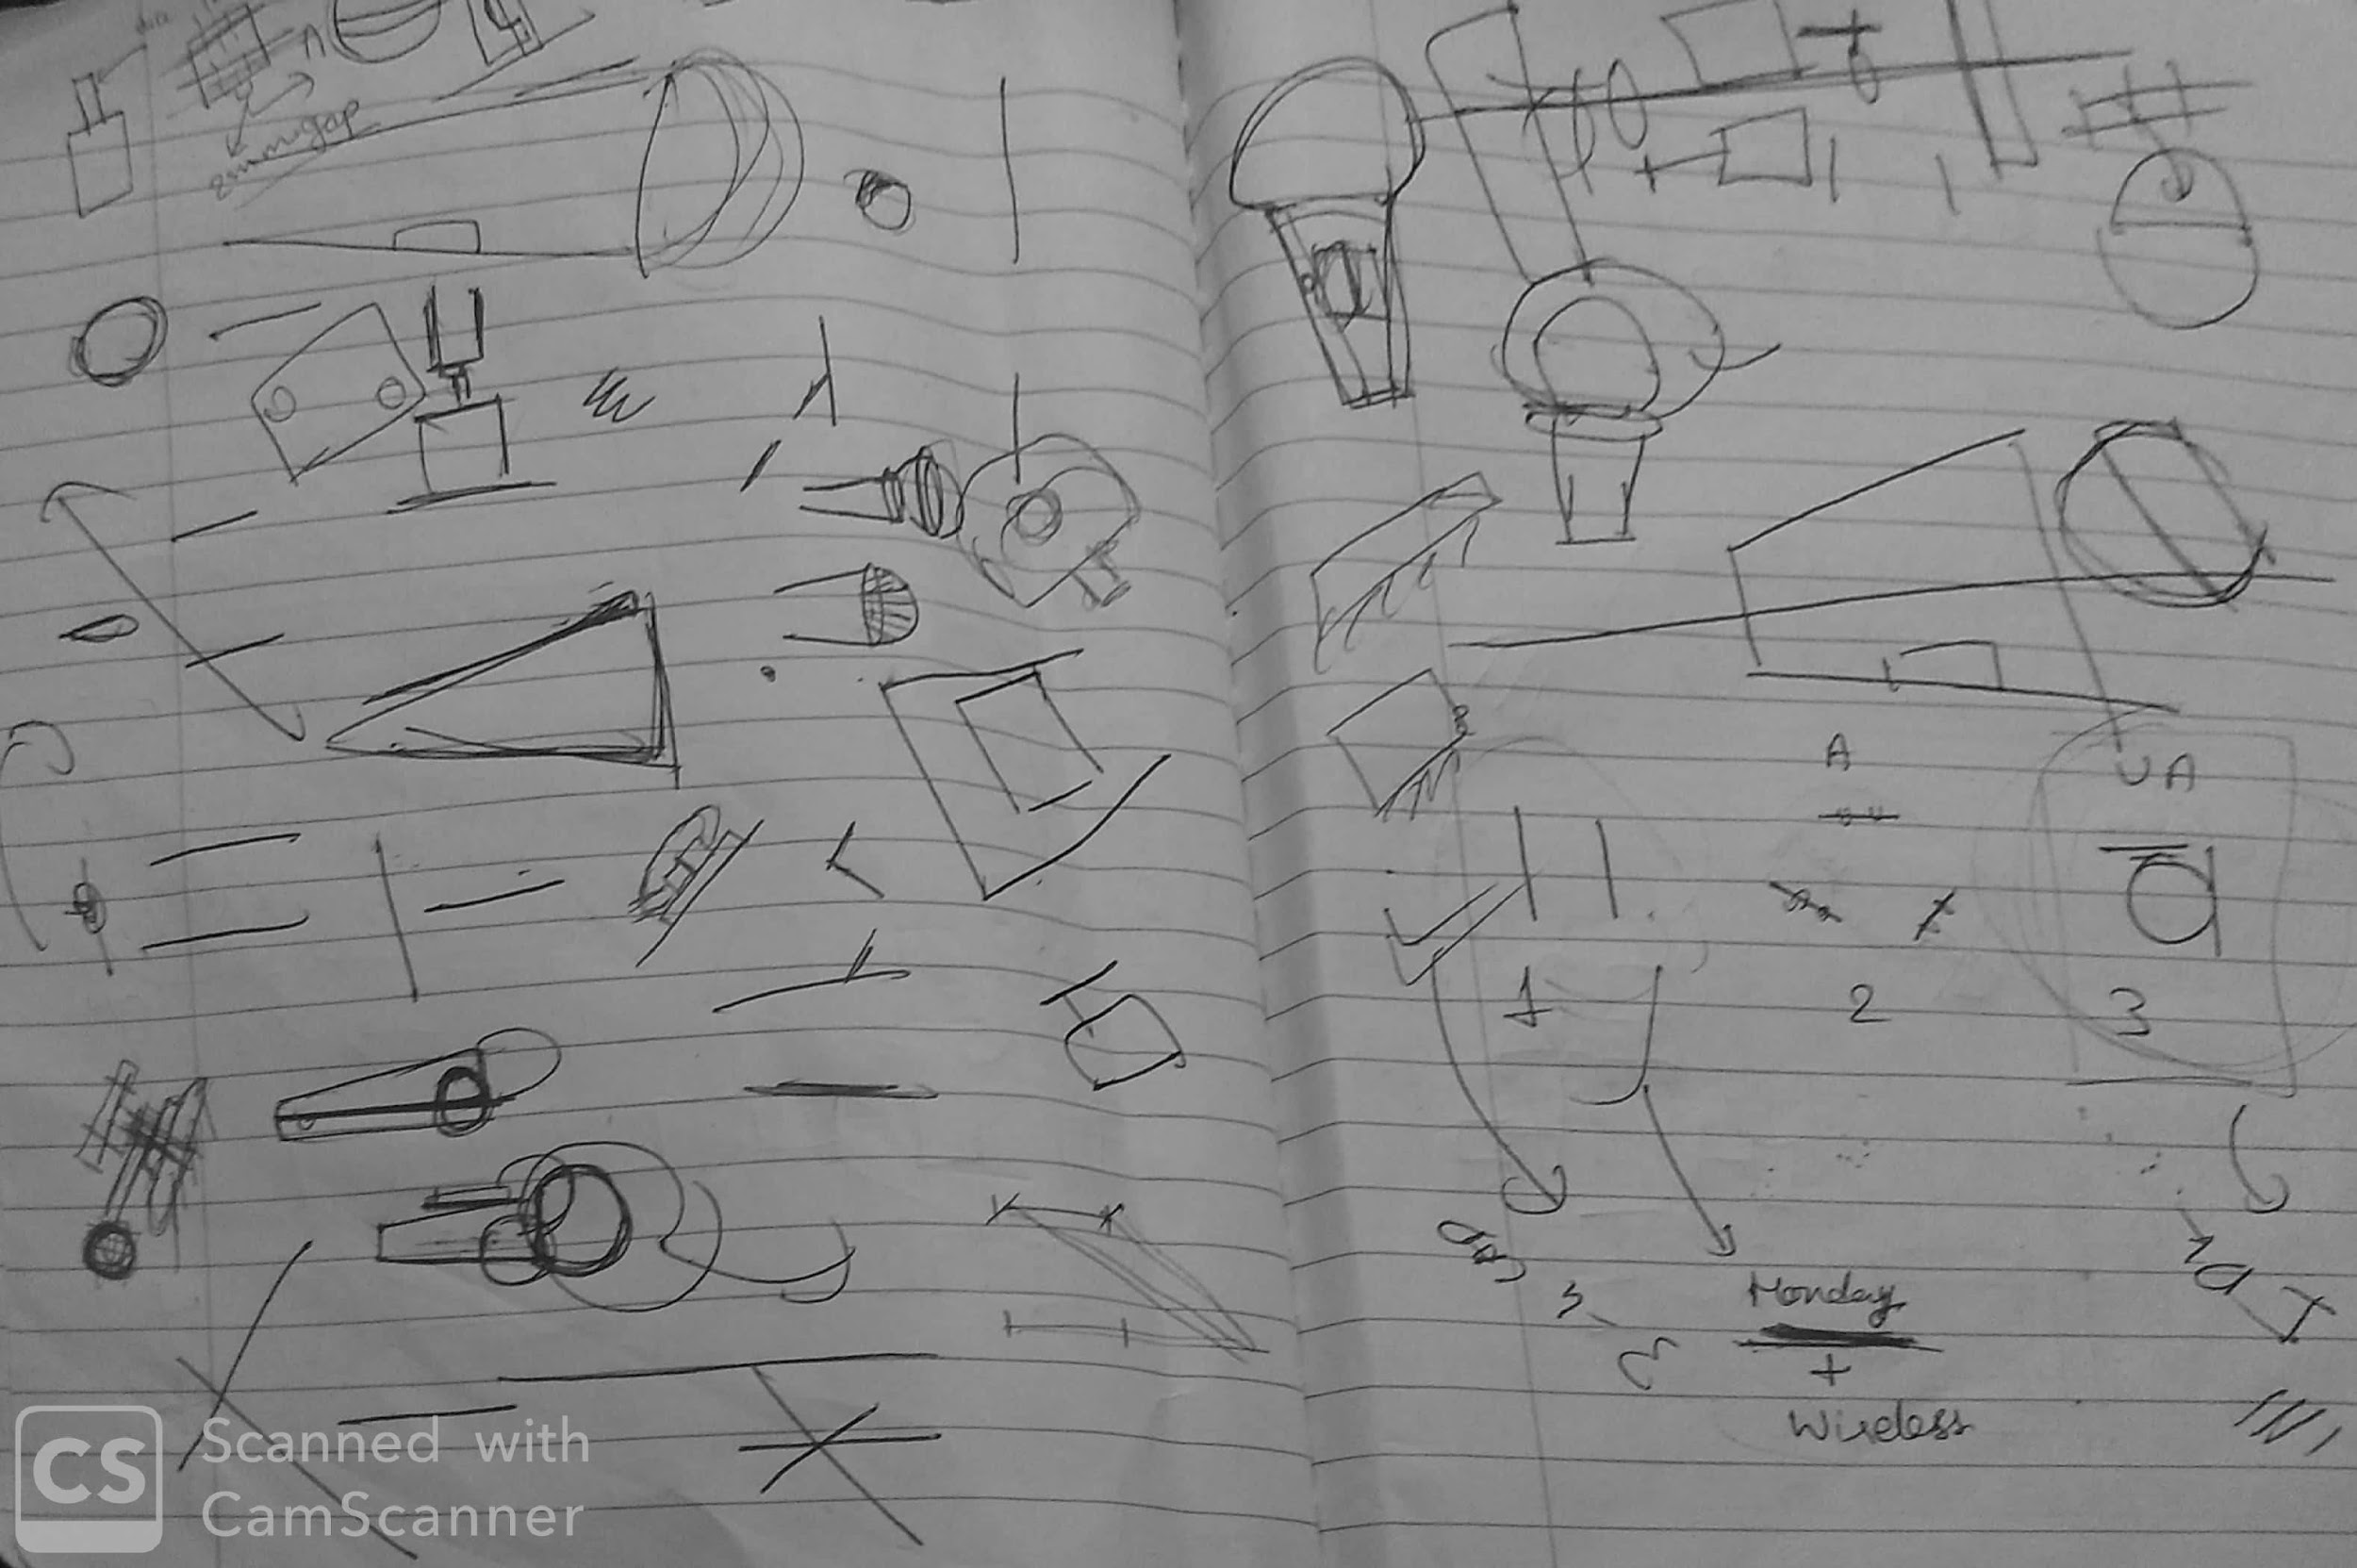 2mm gap
A
UA
1 2 3
Monday
+
Wireless
Scanned with
CS
CamScanner